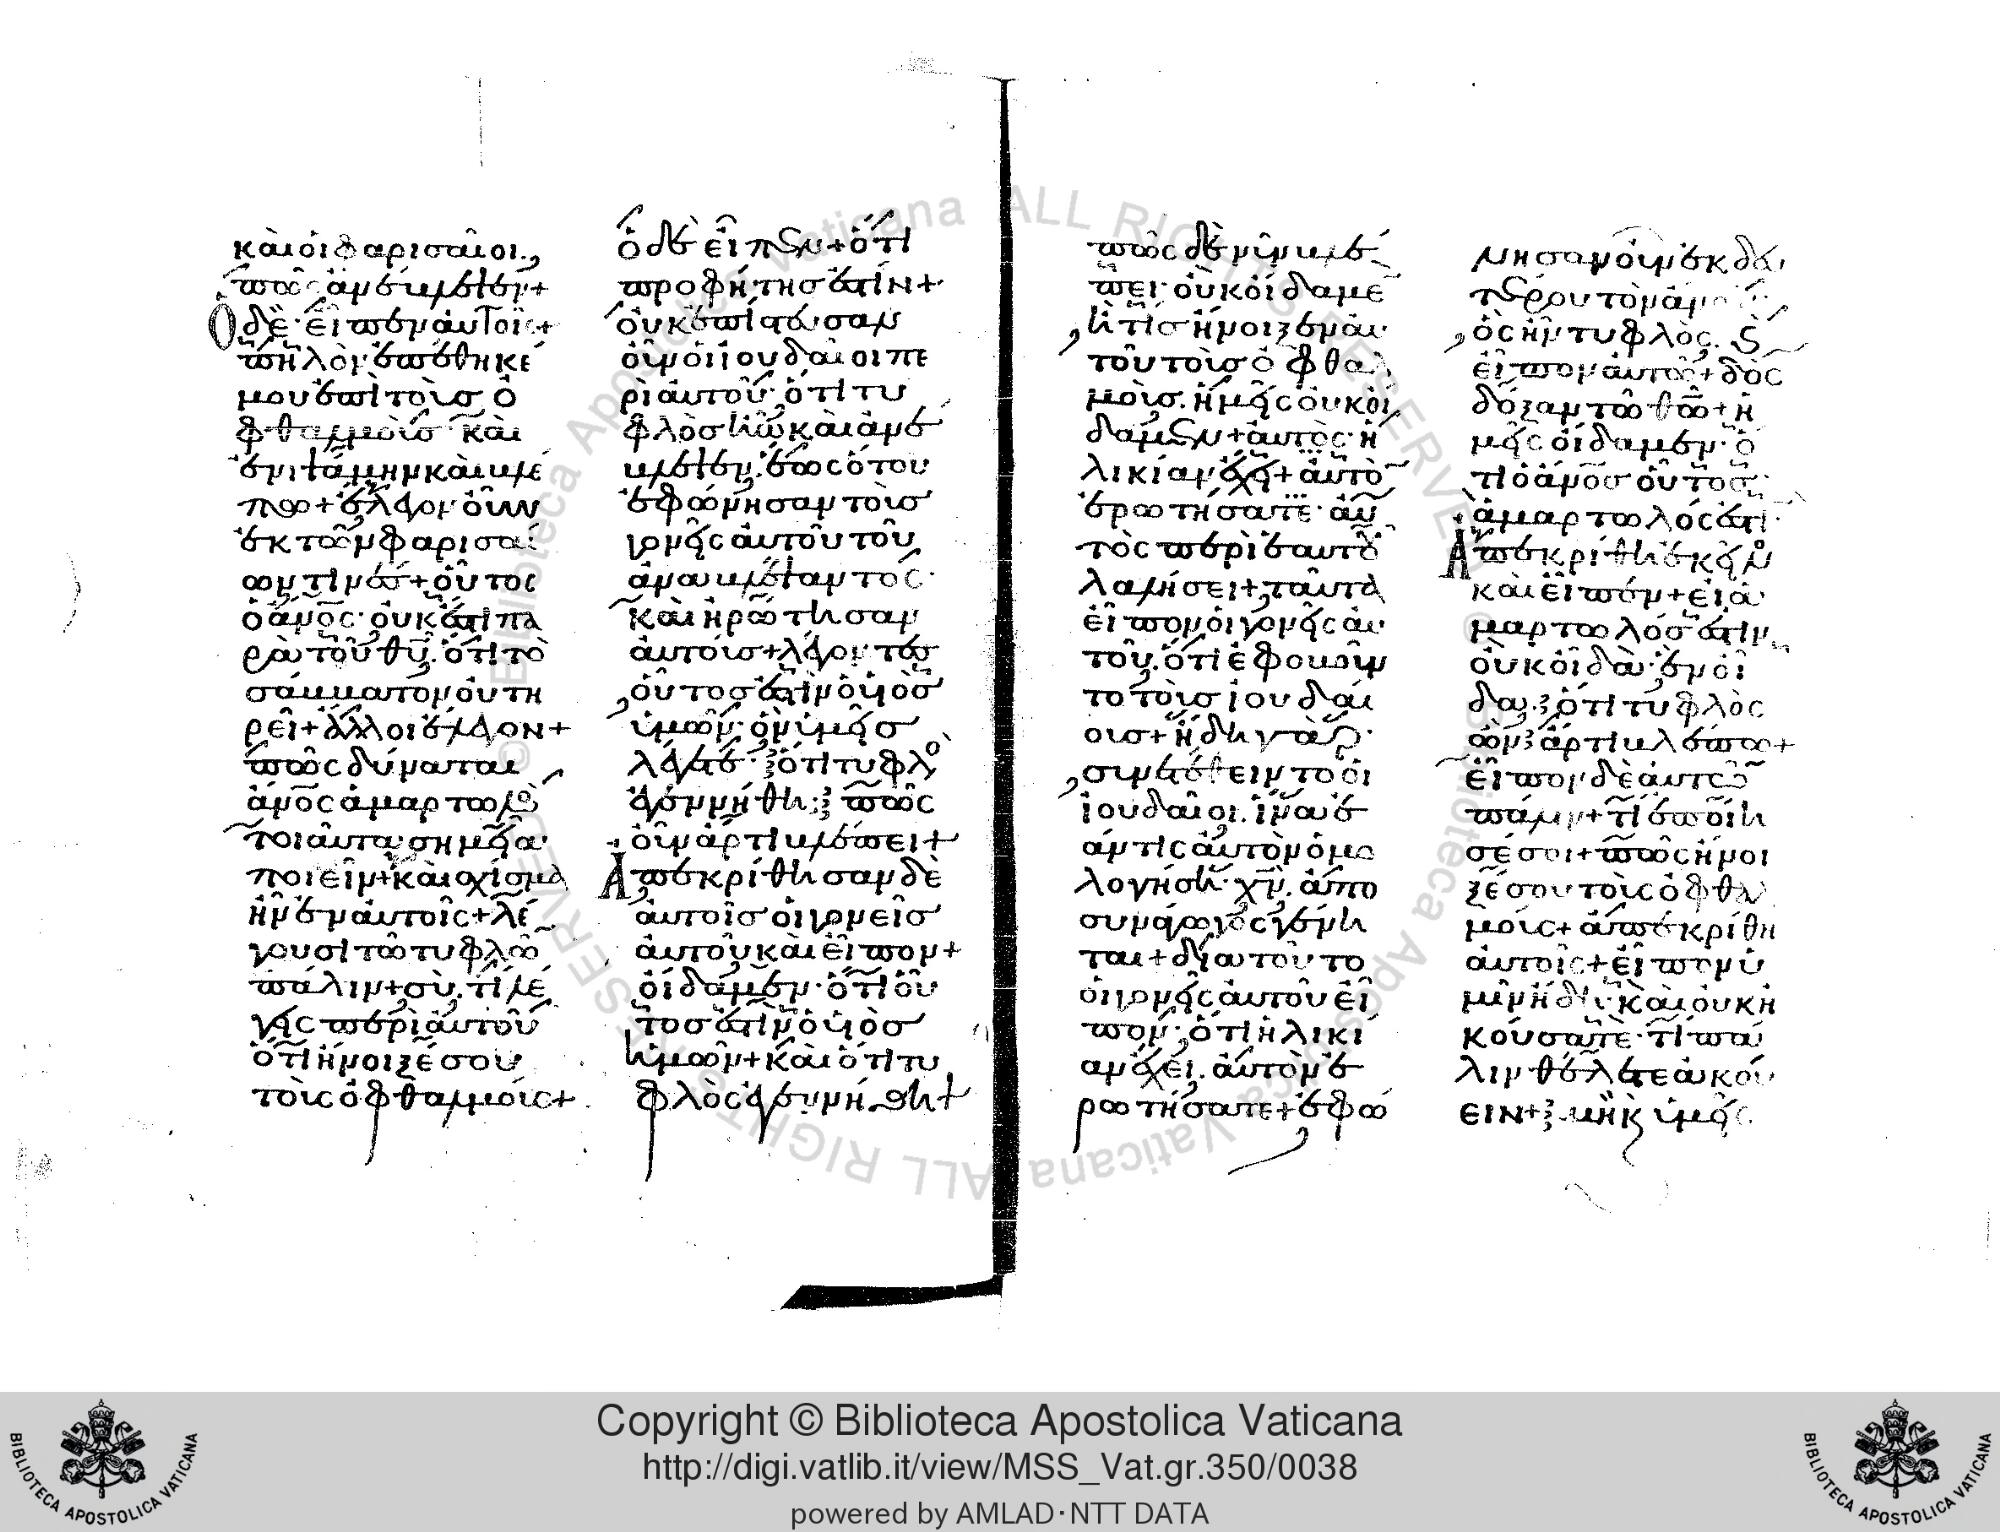 καὶ οἱ φαρισαῖοι,
πῶς ἀνέβλεψεν+
Ὁ δὲ· εἶπεν αὐτοῖς+
πηλὸν ἐπέθηκέ
μου ἐπὶ τοὺς ὀ
φθαλμοὺς καὶ
ἐνιψάμην καὶ βλέ
πω+ ἔλεγον οὖν
ἐκ τῶν φαρισαί
ων τινές+ οὗτος
ὁ ἄνος· οὐκ ἔστι πα
ρὰ τοῦ θυ. ὅτι τὸ
σάββατον οὐ τη
ρεῖ+ ἄλλοι ἔλεγον+
πῶς δύναται
ἄνος ἁμαρτωλὸ
τοιαῦτα σημεῖα
ποιεῖν+ καὶ σχίσμα
ἦν ἐν αὐτοῖς+ λέ
γουσι τῶ τυφλῶ
πάλιν+ σὺ. τί λέ
γεις περὶ αὐτοῦ
ὅτι ἤνοιξέ σου
τοὺς ὀφθαλμούς+
ὁ δὲ εἶπεν+ ὅτι
προφήτης ἐστὶν+
οὐκ ἐπίστευσαν
οὖν οἱ ἰουδαῖοι πε
ρὶ αὐτοῦ· ὅτι τυ
φλὸς ἦν καὶ ἀνέ
βλεψεν. ἕως ὅτου
ἐφώνησαν τοὺς
γονεῖς αὐτοῦ τοῦ
ἀναβλέψαντος·
καὶ ἠρώτησαν
αὐτοὺς+ λέγοντες
οὗτός ἐστιν ὁ υἱὸς
ὑμῶν· ὃν ὑμεῖς
λέγετε· ὅτι τυφλὸ
ἐγεννήθη; πῶς
οὖν ἄρτι βλέπει+
Ἀπεκρίθησαν δὲ
αὐτοῖς οἱ γονεῖς
αὐτοῦ καὶ εἶπον+
οἴδαμεν· ὅτι οὗ
τός ἐστιν ὁ υἱὸς
ἡμῶν+ καὶ ὅτι τυ
φλὸς ἐγεννήθη+
πῶς δὲ νῦν βλέ
πει· οὐκ οἴδαμε
ἢ τίς ἤνοιξεν αὐ
τοῦ τοὺς ὀφθαλ
μούς. ἡμεῖς οὐκ οἴ
δαμεν+ αὐτὸς ἡ
λικίαν ἔχει+ αὐτὸ
ἐρωτήσατε· αὐ
τὸς περὶ ἑαυτοῦ
λαλήσει+ ταῦτα
εἶπον οἱ γονεῖς αὐ
τοῦ. ὅτι ἐφοβοῦν
το τοὺς ἰουδαί
ους+ ἤδη γὰρ·
συνετέθειντο οἱ
ἰουδαῖοι. ἵνα ἐ
άν τις αὐτὸν ὁμο
λογήση χν. ἀπο
συνάγωγος γένη
ται+ διατοῦτο
οἱ γονεῖς αὐτοῦ εἶ
πον· ὅτι ἡλικί
αν ἔχει. αὐτὸν ἐ
ρωτήσατε+ ἐφώ
νησαν οὖν ἐκ δευ
τέρου τὸν
ὃς ἦν τυφλὸς. καὶ
εἶπον αὐτῶ+ δὸς
δόξαν τῶ θῶ+ ἡ
μεῖς οἴδαμεν· ὅ
τι ὁ ἄνος οὗτος
ἁμαρτωλός ἐστι·
Ἀπεκρίθη ἐκεῖνο
καὶ εἶπεν+ εἰ ἁ
μαρτωλός ἐστιν,
οὐκ οἶδα· ἓν οἶ
δα. ὅτι τυφλὸς
ὢν ἄρτι βλέπω+
εἶπον δὲ αὐτῶ
πάλιν+ τί ἐποίη
σέ σοι+ πῶς ἤνοι
ξέ σου τοὺς ὀφθαλ
μούς+ ἀπεκρίθη
αὐτοῖς+ εἶπον ὑ
μῖν ἤδη· καὶ οὐκ ἠ
κούσατε· τί πά
λιν θέλετε ἀκού
ειν+ μὴ κ ὑμεῖς
Copyright © Biblioteca Apostolica Vaticana
http://digi.vatlib.it/view/MSS_Vat.gr.350/0038
powered by AMLAD·NTT DATA
BIBLIOTECA APOSTOLICA VATICANA
BIBLIOTECA APOSTOLICA VATICANA